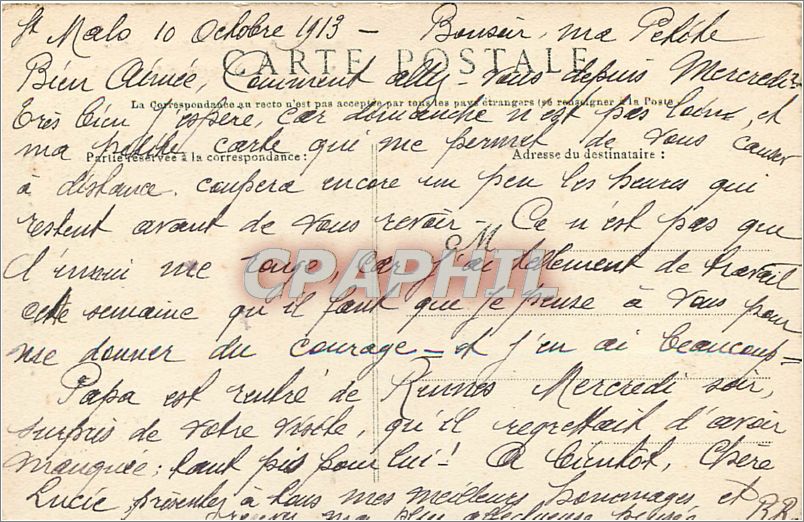 St Malo 10 Octobre 1913 - Bonsoir, ma Petite
CARTE POSTALE
Bien Aimée, Comment allez-vous depuis Mercredi -
La Correspondance au recto n'est pas acceptée par tous les pays étrangers (se renseigner à la Poste)
très bien j'espère, car dimanche n'est pas loin, et
ma petite carte qui me permet de vous causer
Partie réservée à la correspondance :
Adresse du destinataire :
à distance coupera encore un peu les heures qui
restent avant de vous revoir - Ce n'est pas que
M
l'ennui me ronge, car j'ai tellement de travail
CPAPHIL
cette semaine qu'il faut que je pense à vous pour
me donner du courage - et j'en ai beaucoup -
Papa est rentré de Rennes Mercredi soir,
surpris de votre visite, qu'il regrettait d'avoir
manquée : tant pis pour lui ! A bientôt, Chère
Lucie présentez à tous mes meilleurs hommages et
ma plus affectueuse pensée